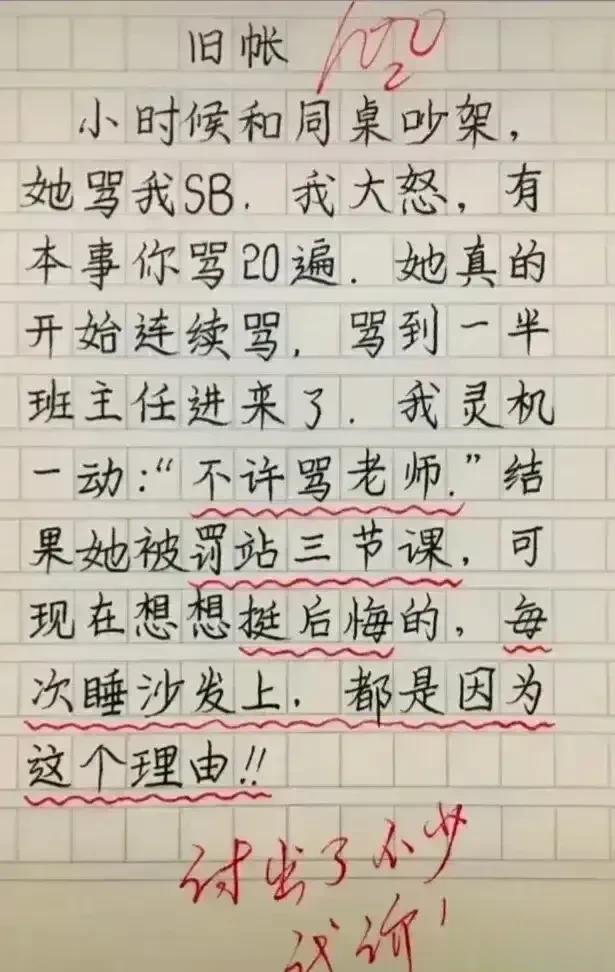 旧帐
100
小时候和同桌吵架，
她骂我SB．我大怒，有
本事你骂20遍．她真的
开始连续骂，骂到一半
班主任进来了．我灵机
一动：“不许骂老师．”结
果她被罚站三节课，可
现在想想挺后悔的，每
次睡沙发上，都是因为
这个理由!!
付出了不少
代价!